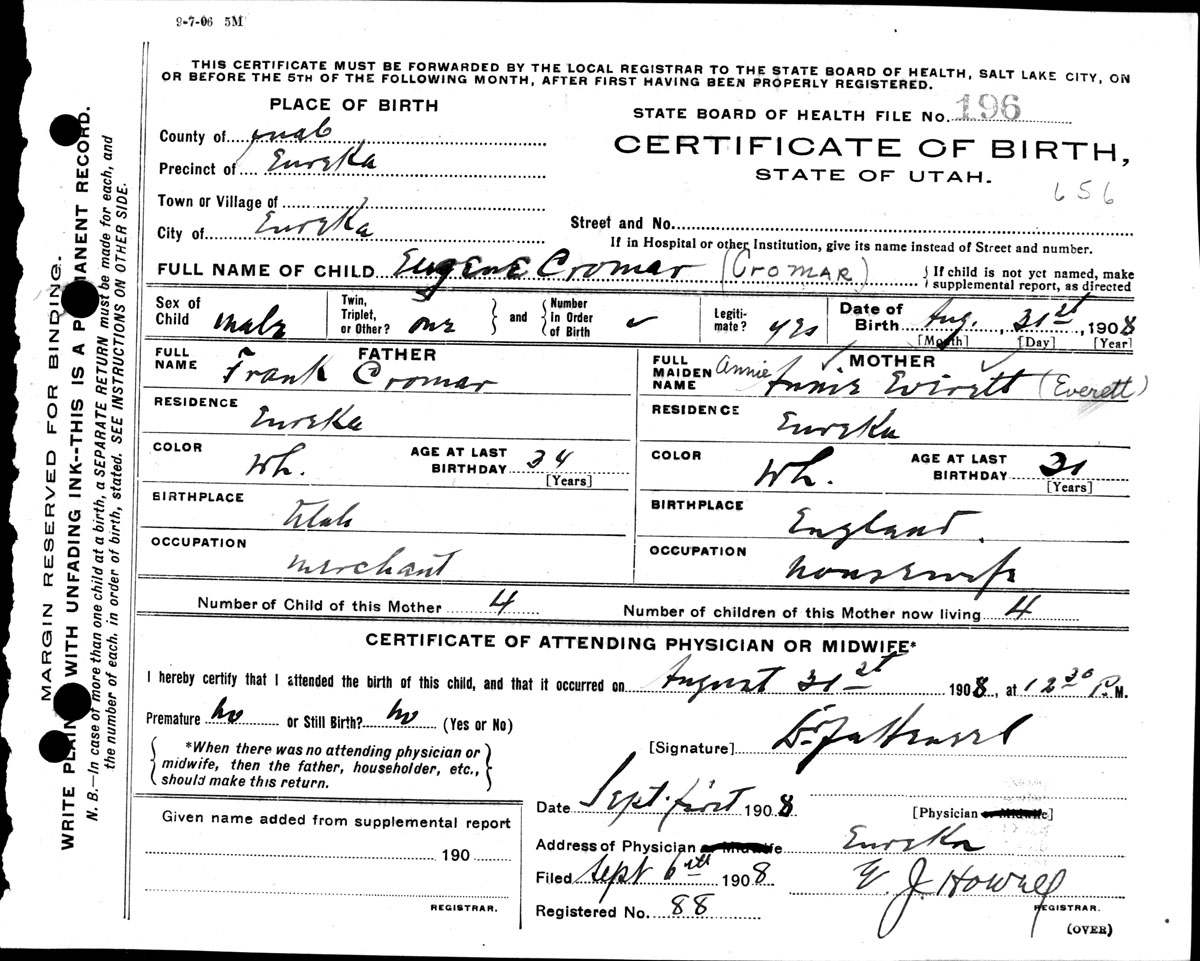 9-7-06 5M
THIS CERTIFICATE MUST BE FORWARDED BY THE LOCAL REGISTRAR TO THE STATE BOARD OF HEALTH, SALT LAKE CITY, ON
OR BEFORE THE 5TH OF THE FOLLOWING MONTH, AFTER FIRST HAVING BEEN PROPERLY REGISTERED.
PLACE OF BIRTH
County of Juab
Precinct of Eureka
Town or Village of
City of Eureka
STATE BOARD OF HEALTH FILE No. 196
CERTIFICATE OF BIRTH,
STATE OF UTAH.
656
Street and No.
If in Hospital or other Institution, give its name instead of Street and number.
FULL NAME OF CHILD Eugene Cromar (CROMAR) { If child is not yet named, make
supplemental report, as directed
Sex of Child male Twin, Triplet, or Other? one } and { Number in Order of Birth ✓ Legiti-mate? yes Date of Birth Aug. 31st 1908
[Month] [Day] [Year]
FATHER
FULL NAME Frank Cromar
RESIDENCE Eureka
COLOR Wh. AGE AT LAST BIRTHDAY 34
[Years]
BIRTHPLACE Utah
OCCUPATION merchant
MOTHER
FULL MAIDEN NAME Annie Annie Evirett (Everett)
RESIDENCE Eureka
COLOR Wh. AGE AT LAST BIRTHDAY 31
[Years]
BIRTHPLACE England.
OCCUPATION housewife
Number of Child of this Mother 4 Number of children of this Mother now living 4
CERTIFICATE OF ATTENDING PHYSICIAN OR MIDWIFE*
I hereby certify that I attended the birth of this child, and that it occurred on August 31st 1908, at 12 30 P.M.
Premature no or Still Birth? no (Yes or No)
{ *When there was no attending physician or
midwife, then the father, householder, etc.,
should make this return. }
[Signature] Dr.
Date Sept. first 1908 [Physician or Midwife]
Address of Physician or Midwife Eureka
Filed Sept 6th 1908 J. Howell
REGISTRAR.
Registered No. 88
(OVER)
Given name added from supplemental report
190
REGISTRAR.
MARGIN RESERVED FOR BINDING.
WRITE PLAIN WITH UNFADING INK--THIS IS A P MANENT RECORD.
N. B.—In case of more than one child at a birth, a SEPARATE RETURN must be made for each, and
the number of each, in order of birth, stated. SEE INSTRUCTIONS ON OTHER SIDE.